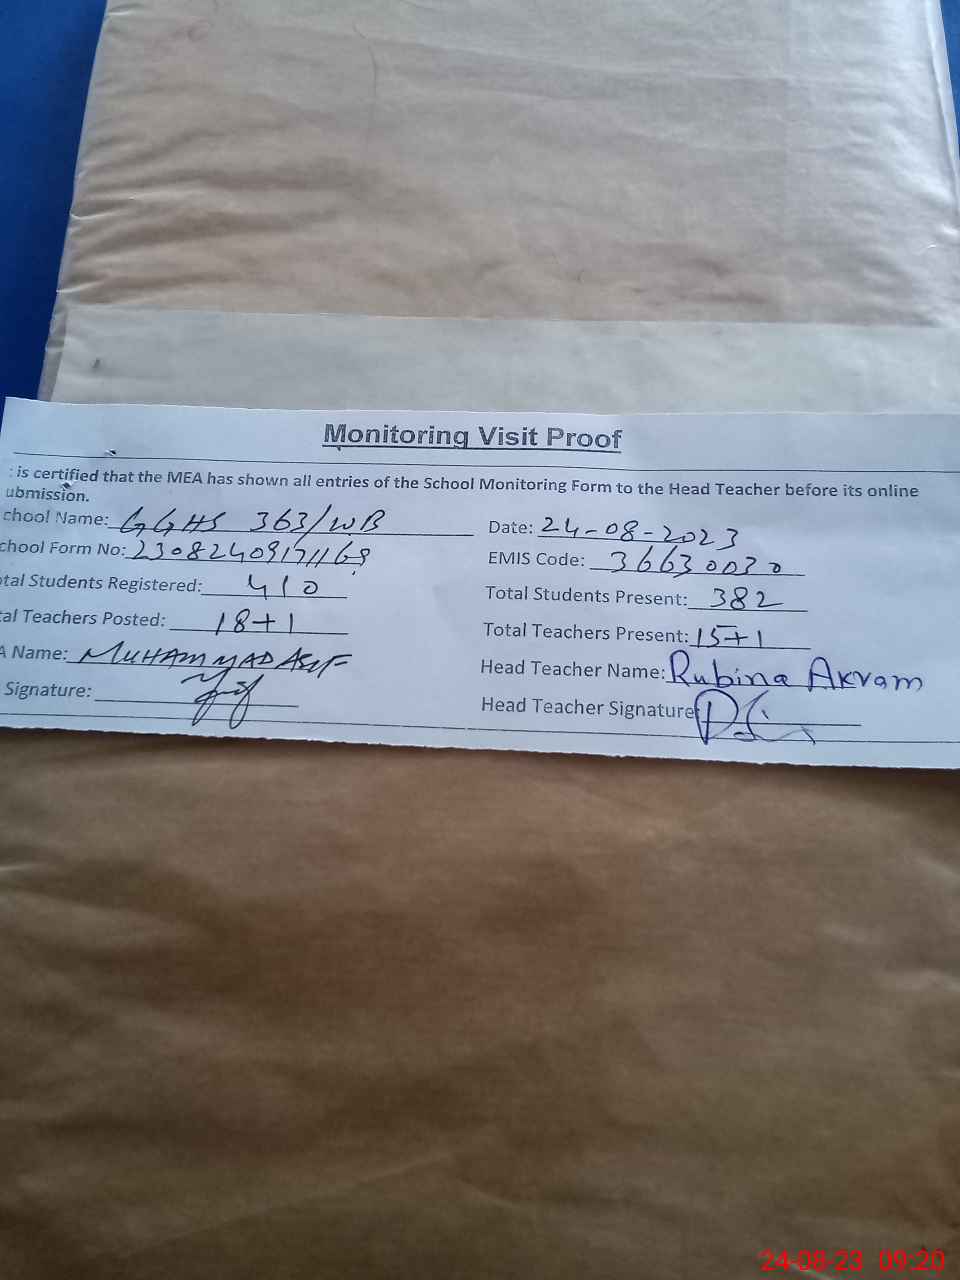 Monitoring Visit Proof
: is certified that the MEA has shown all entries of the School Monitoring Form to the Head Teacher before its online
ubmission.
chool Name: GGHS 363/WB Date: 24-08-2023
chool Form No: EMIS Code: 36630030
otal Students Registered: 410 Total Students Present: 382
tal Teachers Posted: 18+1 Total Teachers Present: 15+1
A Name: MUHAMMAD ASIF Head Teacher Name: Rubina Akram
Signature: Head Teacher Signature
24-08-23 09:20